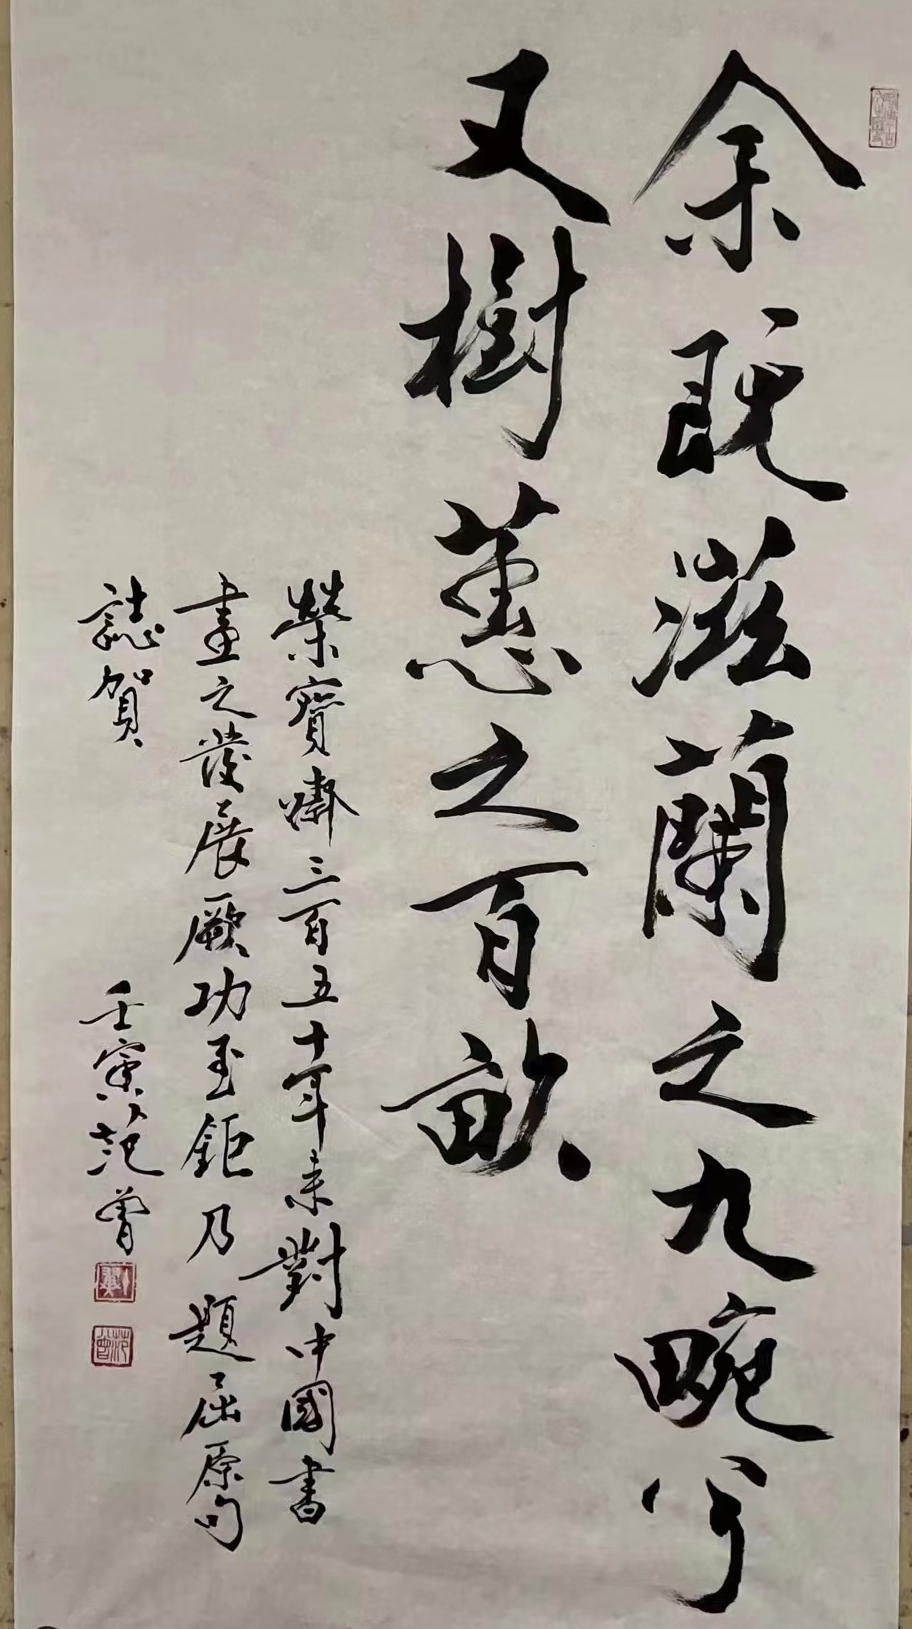 余既滋蘭之九畹兮
又樹蕙之百畝
榮寶齋三百五十年來對中國書
畫之發展厥功至鉅乃題屈原句
誌賀
壬寅范曾
范曾